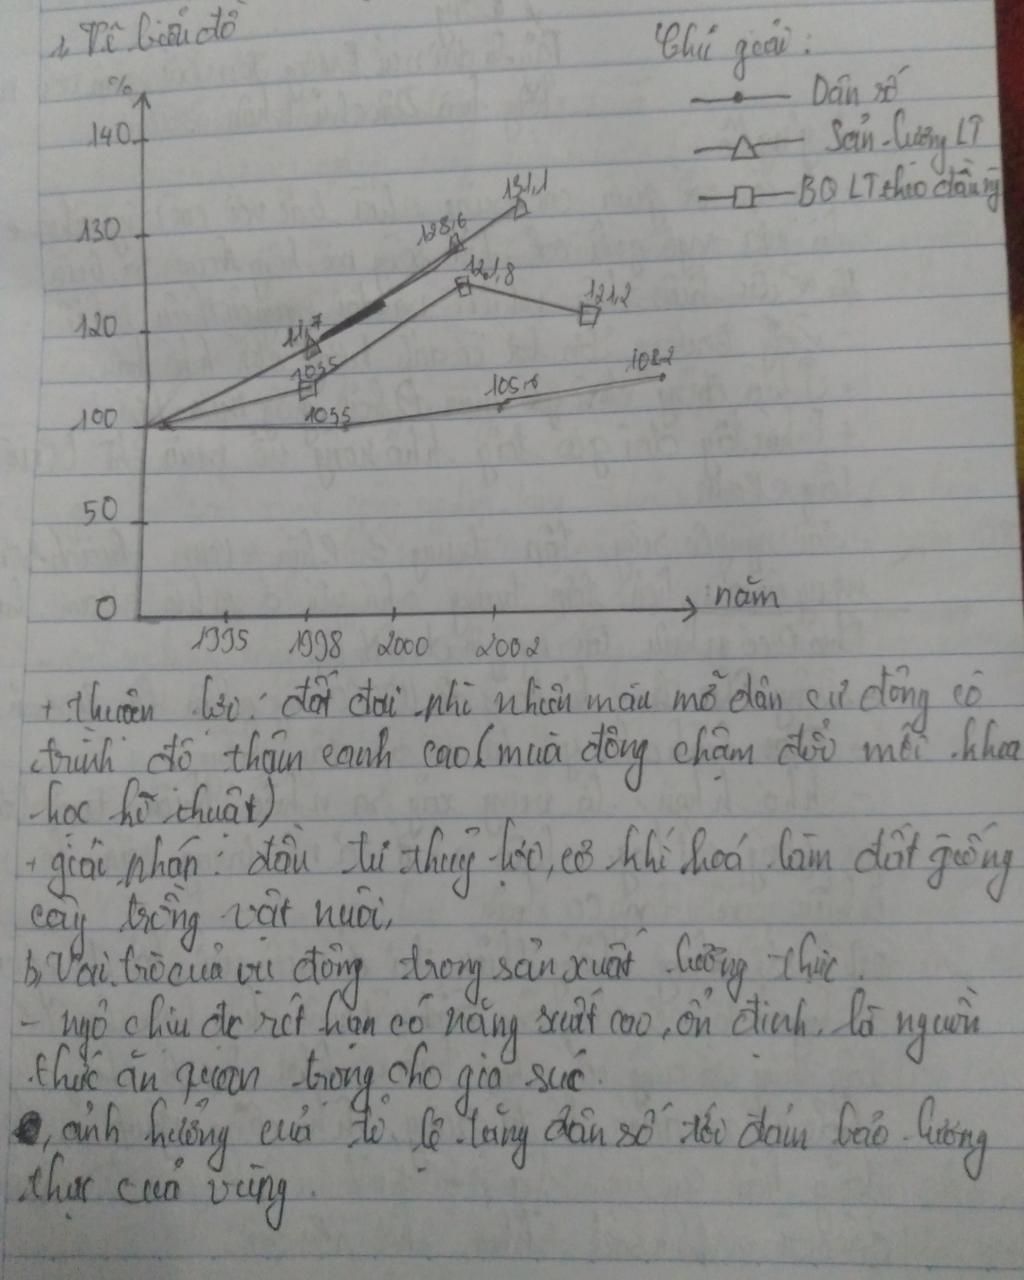 1, Vẽ biểu đồ
Chú giải:
Dân số
Sản lượng LT
BQ LT theo đầu ng
%
140
130
120
100
50
0
131,1
128,6
121,8
121,2
11,7
1035
1035
105,6
108,2
1995 1998 2000 2002 năm
+ thuận lợi: đất đai phì nhiêu màu mỡ dân cư đông có
trình độ thâm canh cao (mùa đông chậm đổi mới khoa
học kĩ thuật)
+ giải pháp: đầu tư thuỷ lợi, cơ khí hoá làm đất giống
cây trồng vật nuôi,
b, Vai trò của vụ đông trong sản xuất lương thực.
- ngô chịu đc rét hạn có năng suất cao, ổn định, là nguồn
thức ăn quan trọng cho gia súc.
, ảnh hưởng của tỉ lệ tăng dân số tới đảm bảo lương
thực của vùng.